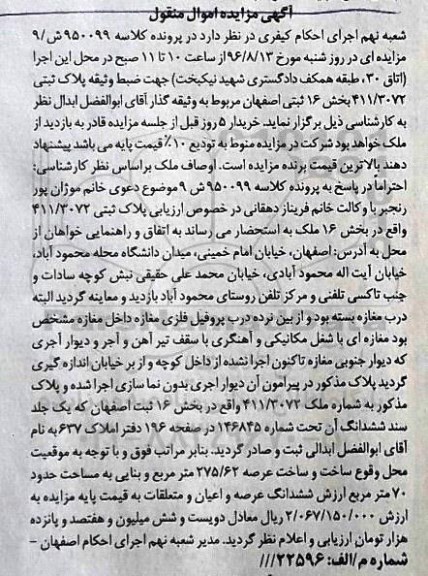 آگهی مزایده اموال منقول
شعبه نهم اجرای احکام کیفری در نظر دارد در پرونده کلاسه ۹۵۰۰۹۹ ش/۹
مزایده ای در روز شنبه مورخ ۹۶/۸/۱۳ از ساعت ۱۰ تا ۱۱ صبح در محل این اجرا
(اتاق ۳۰، طبقه همکف دادگستری شهید نیکبخت) جهت ضبط وثیقه پلاک ثبتی
۴۱۱/۳۰۷۲ بخش ۱۶ ثبتی اصفهان مربوط به وثیقه گذار آقای ابوالفضل ابدال نظر
به کارشناسی ذیل برگزار نماید. خریدار ۵ روز قبل از جلسه مزایده قادر به بازدید از
ملک خواهد بود شرکت در مزایده منوط به تودیع ۱۰٪ قیمت پایه می باشد پیشنهاد
دهند بالاترین قیمت برنده مزایده است. اوصاف ملک براساس نظر کارشناسی:
احتراماً در پاسخ به پرونده کلاسه ۹۵۰۰۹۹ ش ۹ موضوع دعوی خانم موژان پور
رنجبر با وکالت خانم فریناز دهقانی در خصوص ارزیابی پلاک ثبتی ۴۱۱/۳۰۷۲
واقع در بخش ۱۶ ملک به استحضار می رساند به اتفاق و راهنمایی خواهان از
محل به آدرس: اصفهان، خیابان امام خمینی، میدان دانشگاه محله محمود آباد،
خیابان آیت اله محمود آبادی، خیابان محمد علی حقیقی نبش کوچه سادات و
جنب تاکسی تلفنی و مرکز تلفن روستای محمود آباد بازدید و معاینه گردید البته
درب مغازه بسته بود و از بین نرده درب پروفیل فلزی مغازه داخل مغازه مشخص
بود مغازه ای با شغل مکانیکی و آهنگری با سقف تیر آهن و آجر و دیوار آجری
که دیوار جنوبی مغازه تاکنون اجرا نشده از داخل کوچه و از بر خیابان اندازه گیری
گردید پلاک مذکور در پیرامون آن دیوار اجری بدون نما سازی اجرا شده و پلاک
مذکور به شماره ملک ۴۱۱/۳۰۷۲ واقع در بخش ۱۶ ثبت اصفهان که یک جلد
سند ششدانگ آن تحت شماره ۱۴۶۸۴۵ در صفحه ۱۹۶ دفتر املاک ۶۳۷ به نام
آقای ابوالفضل ابدالی ثبت و صادر گردید. بنابر مراتب فوق و با توجه به موقعیت
محل وقوع ساخت و ساخت عرصه ۲۷۵/۶۲ متر مربع و بنایی به مساحت حدود
۷۰ متر مربع ارزش ششدانگ عرصه و اعیان و متعلقات به قیمت پایه مزایده به
ارزش ۲/۰۶۷/۱۵۰/۰۰۰ ریال معادل دویست و شش میلیون و هفتصد و پانزده
هزار تومان ارزیابی و اعلام نظر گردید. مدیر شعبه نهم اجرای احکام اصفهان -
شماره م/الف: ۲۲۵۹۶///